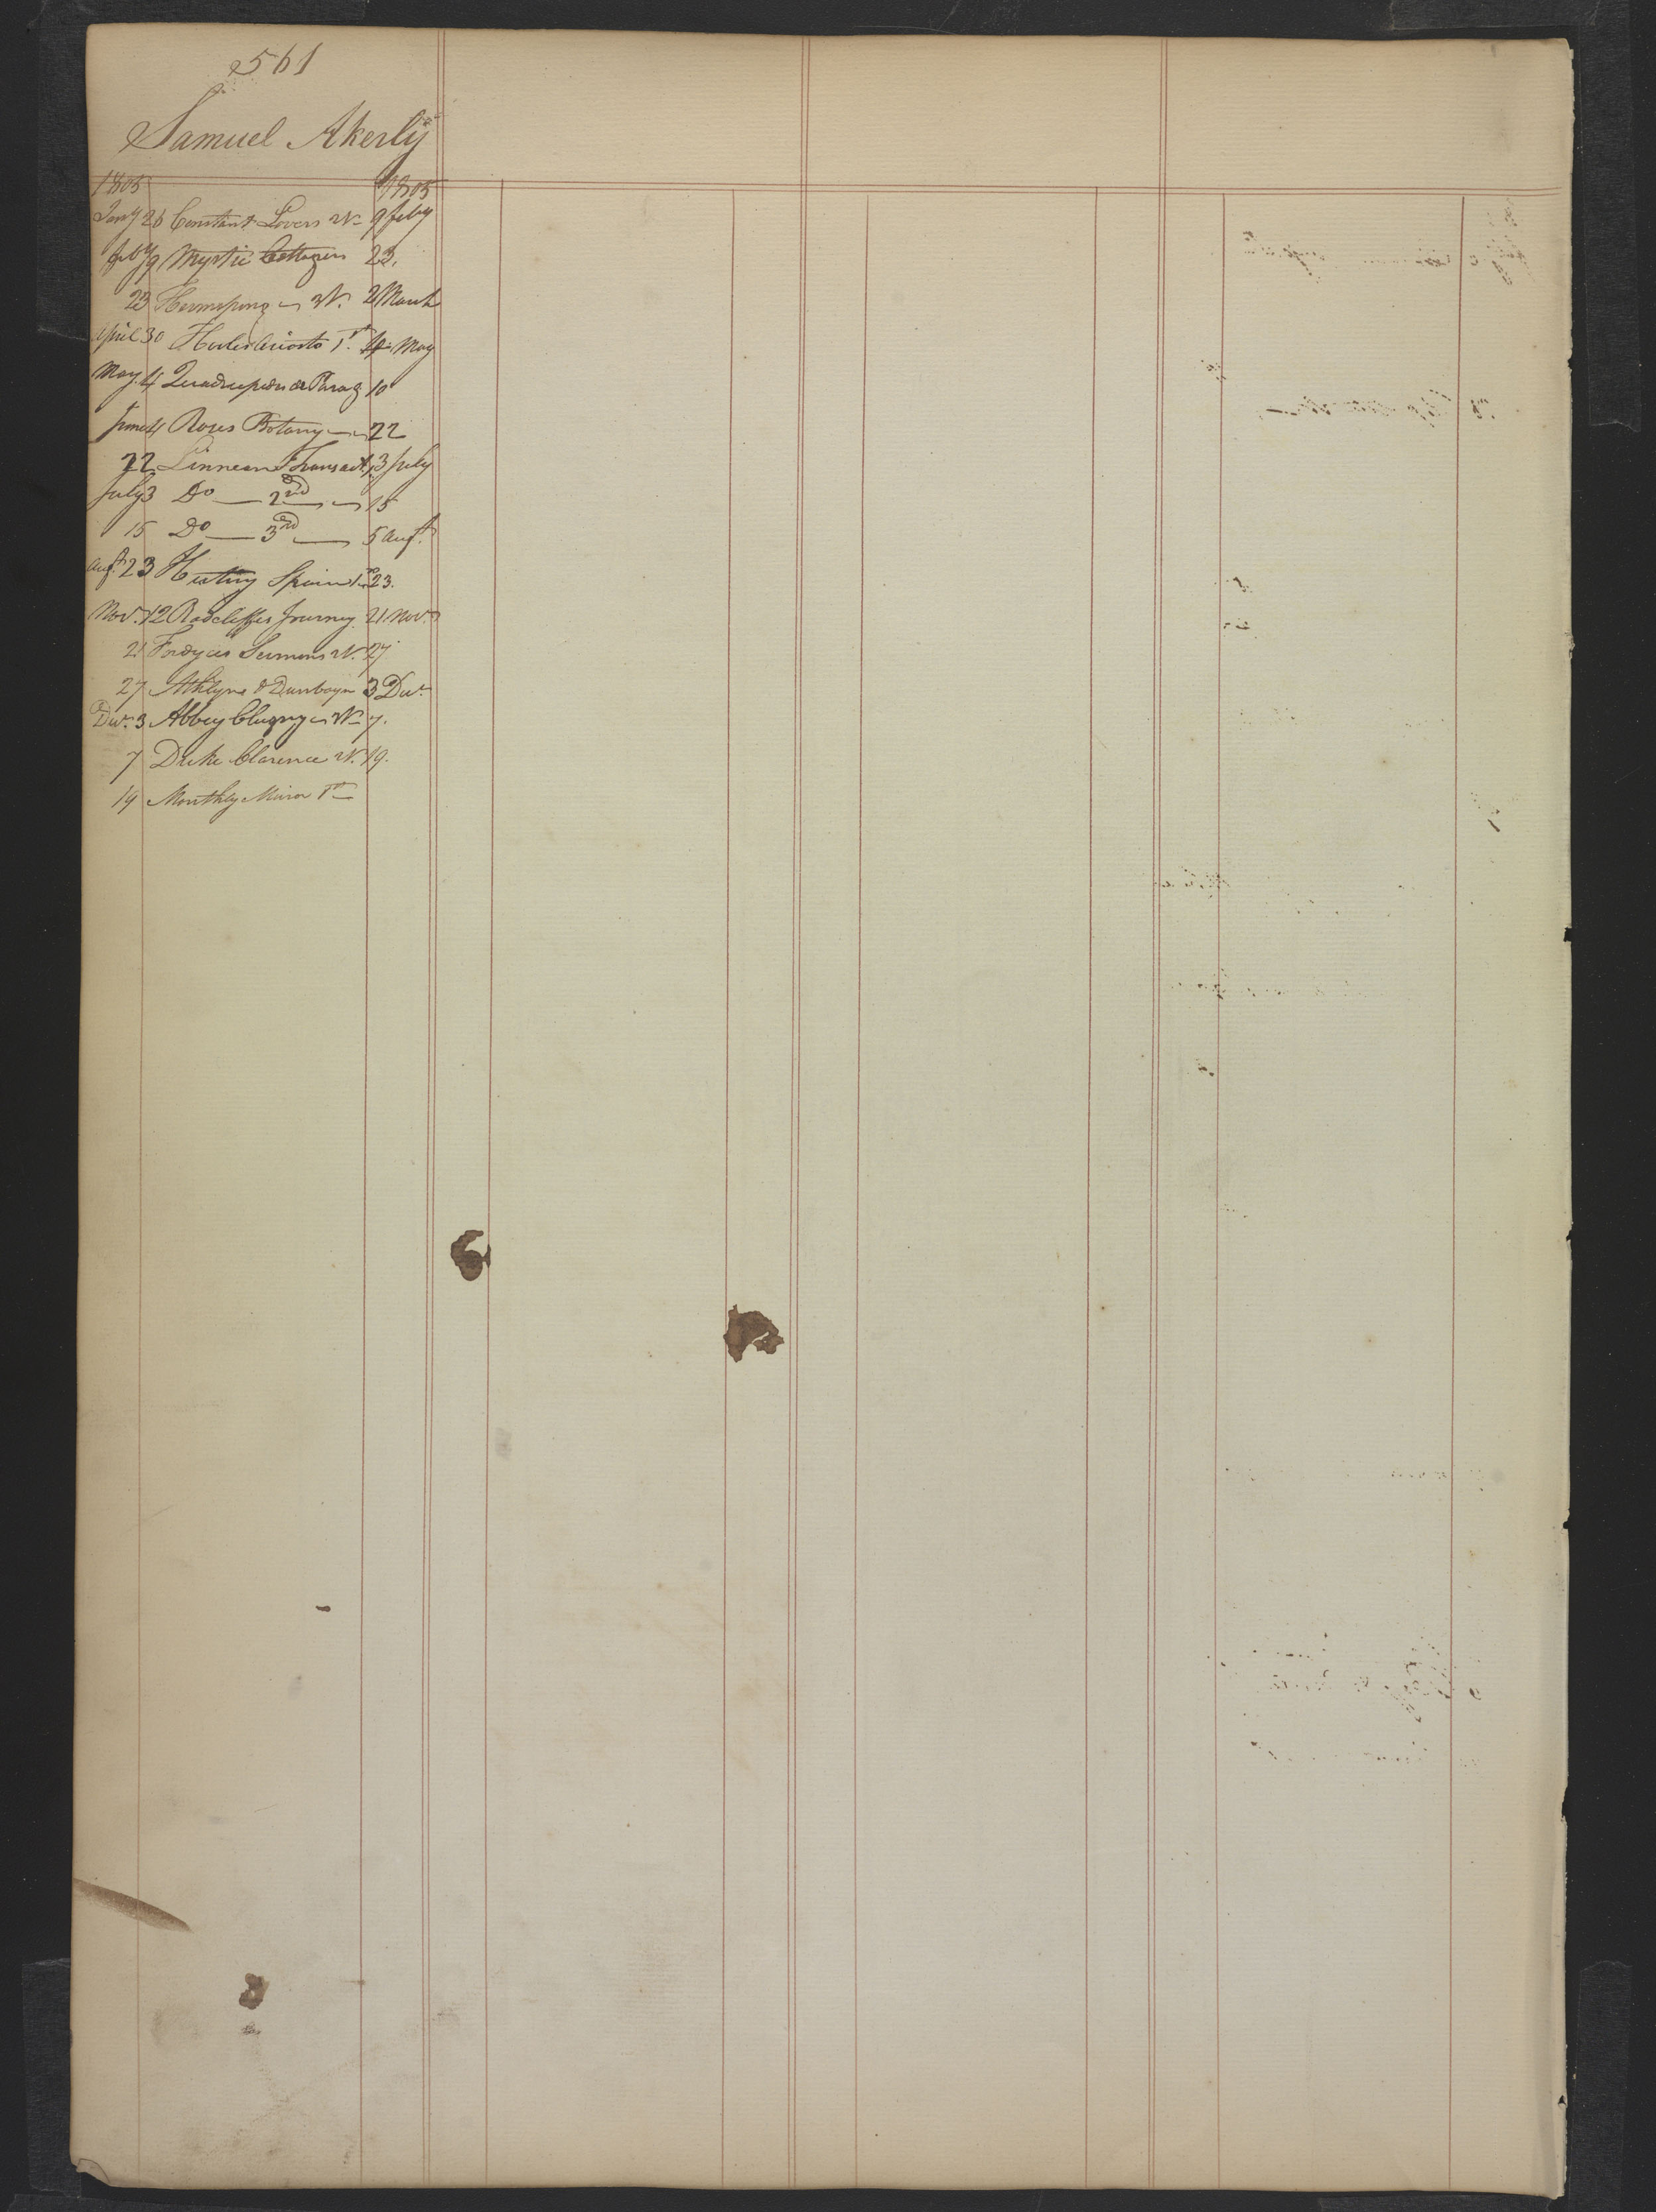 561
Samuel Akerly
1805 1805
Jany 26 Constant Lovers W 9 feby
feby 9 Mystic Cottagers 23.
23 Hermsprong W. 2 March
April 30 Hooles Ariosto 1st 4 May
May 4 Quadrupeds or Parag 10
June 4 Roses Botany 22
22 Linnean Transact. 3 July
July 3 Do 2nd 15
15 Do 3rd 5 Augt.
Augt. 23 Spain 23.
Novr. 12 Radcliffes Journey 21 Novr.
21 Fordyces Sermons W. 27
27 Athlyne & Dunboyn 3 Decr.
Decr. 3 Abbey Clugny W 7.
7 Duke Clarence W. 19.
19 Monthly Miror 1st